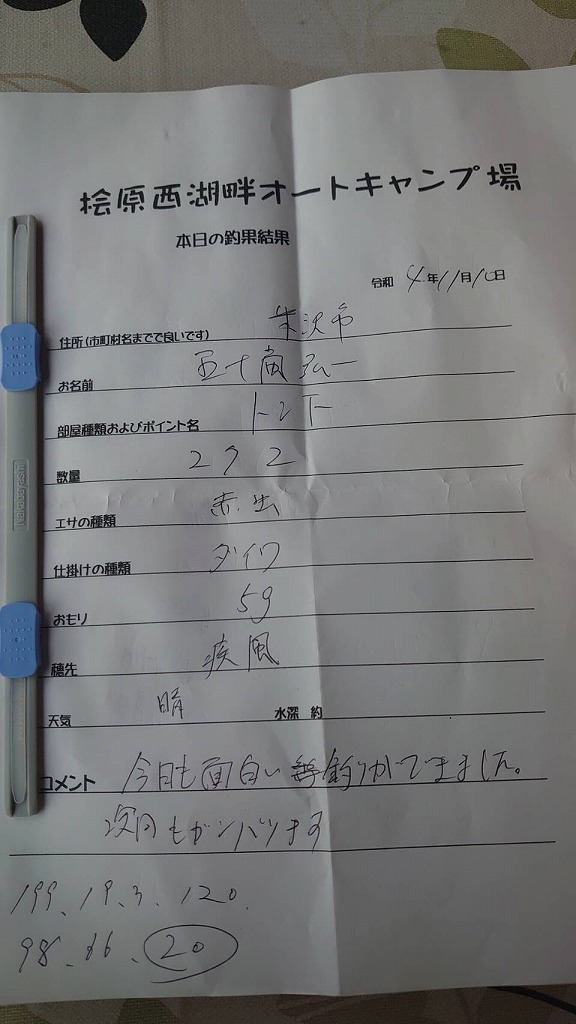 桧原西湖畔オートキャンプ場
本日の釣果結果
令和 4年11月10日
住所(市町村名までで良いです) 米沢市
お名前 五十嵐 弘一
部屋種類およびポイント名
数量 292
エサの種類 赤虫
仕掛けの種類 ダイワ
おもり 5g
穂先 疾風
天気 晴 水深 約
コメント 今日も面白い釣りができました。
次回もガンバリます
199、19、3、120
98、66、20